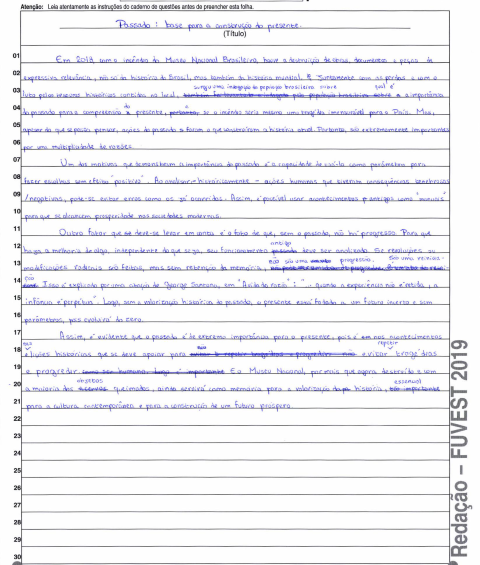 Atenção: Leia atentamente as instruções do caderno de questões antes de preencher esta folha.
Passado : base para a construção do presente.
(Título)
01 Em 2018, com o incêndio do Museu Nacional Brasileiro, houve a destruição de obras, documentos e peças de
02 expressiva relevância, não só da história do Brasil, mas também da história mundial. Juntamente com as perdas e com o
surgiu uma indagação da população brasileira sobre qual é
03 luto pelos resumos históricos contidos no local, também a importância
do
04 do passado para a compreensão presente, se o incêndio seria mesmo uma tragédia imensurável para o País. Mas,
05 apesar do que se possa pensar, ações do passado é foram o que construíram a história atual. Portanto, são extremamente importantes
06 por uma multiplicidade de razões.
07 Um dos motivos que demonstram a importância do passado é a capacidade de usá-lo como parâmetro para
08 fazer escolhas com efeito "positivo". Ao analisar historicamente ações humanas que tiveram consequências
09 /negativas, pode-se evitar erros como os já ocorridos. Assim, é possível usar acontecimentos como "manuais"
10 para que se alcancem prosperidade nas sociedades modernas.
11 Outro fator que se deve-se levar em conta é o fato de que, sem o passado, não há progresso. Para que
antigo
12 haja a melhoria de algo, independente do que seja, seu funcionamento passado deve ser analisado. Se revoluções ou
não são uma progresso. São uma
13 modificações radicais são feitas, mas sem retenção da memória,
14 Isso é explicado por uma citação de George Santana, em "A vida da razão": "... quando a experiência não é retida, a
15 infância é perpétua". Logo, sem a valorização histórica do passado, o presente está fadado a um futuro incerto e sem
16 parâmetros, pois evoluirá do zero.
17 Assim, é evidente que o passado é de extrema importância para o presente, pois é em nos acontecimentos
não repetir
18 e lições históricas que se deve apoiar para evitar tragédias
19 e progredir como ser humano. Logo é importante E o Museu Nacional, por mais que agora destruído e com
objetos essencial
20 a maioria dos acervos queimados, ainda servirá como memória para a valorização da história, tão importante
21 para a cultura contemporânea e para a construção de um futuro próspero.
22
23
24
25
26
27
28
29
30
Redação – FUVEST 2019